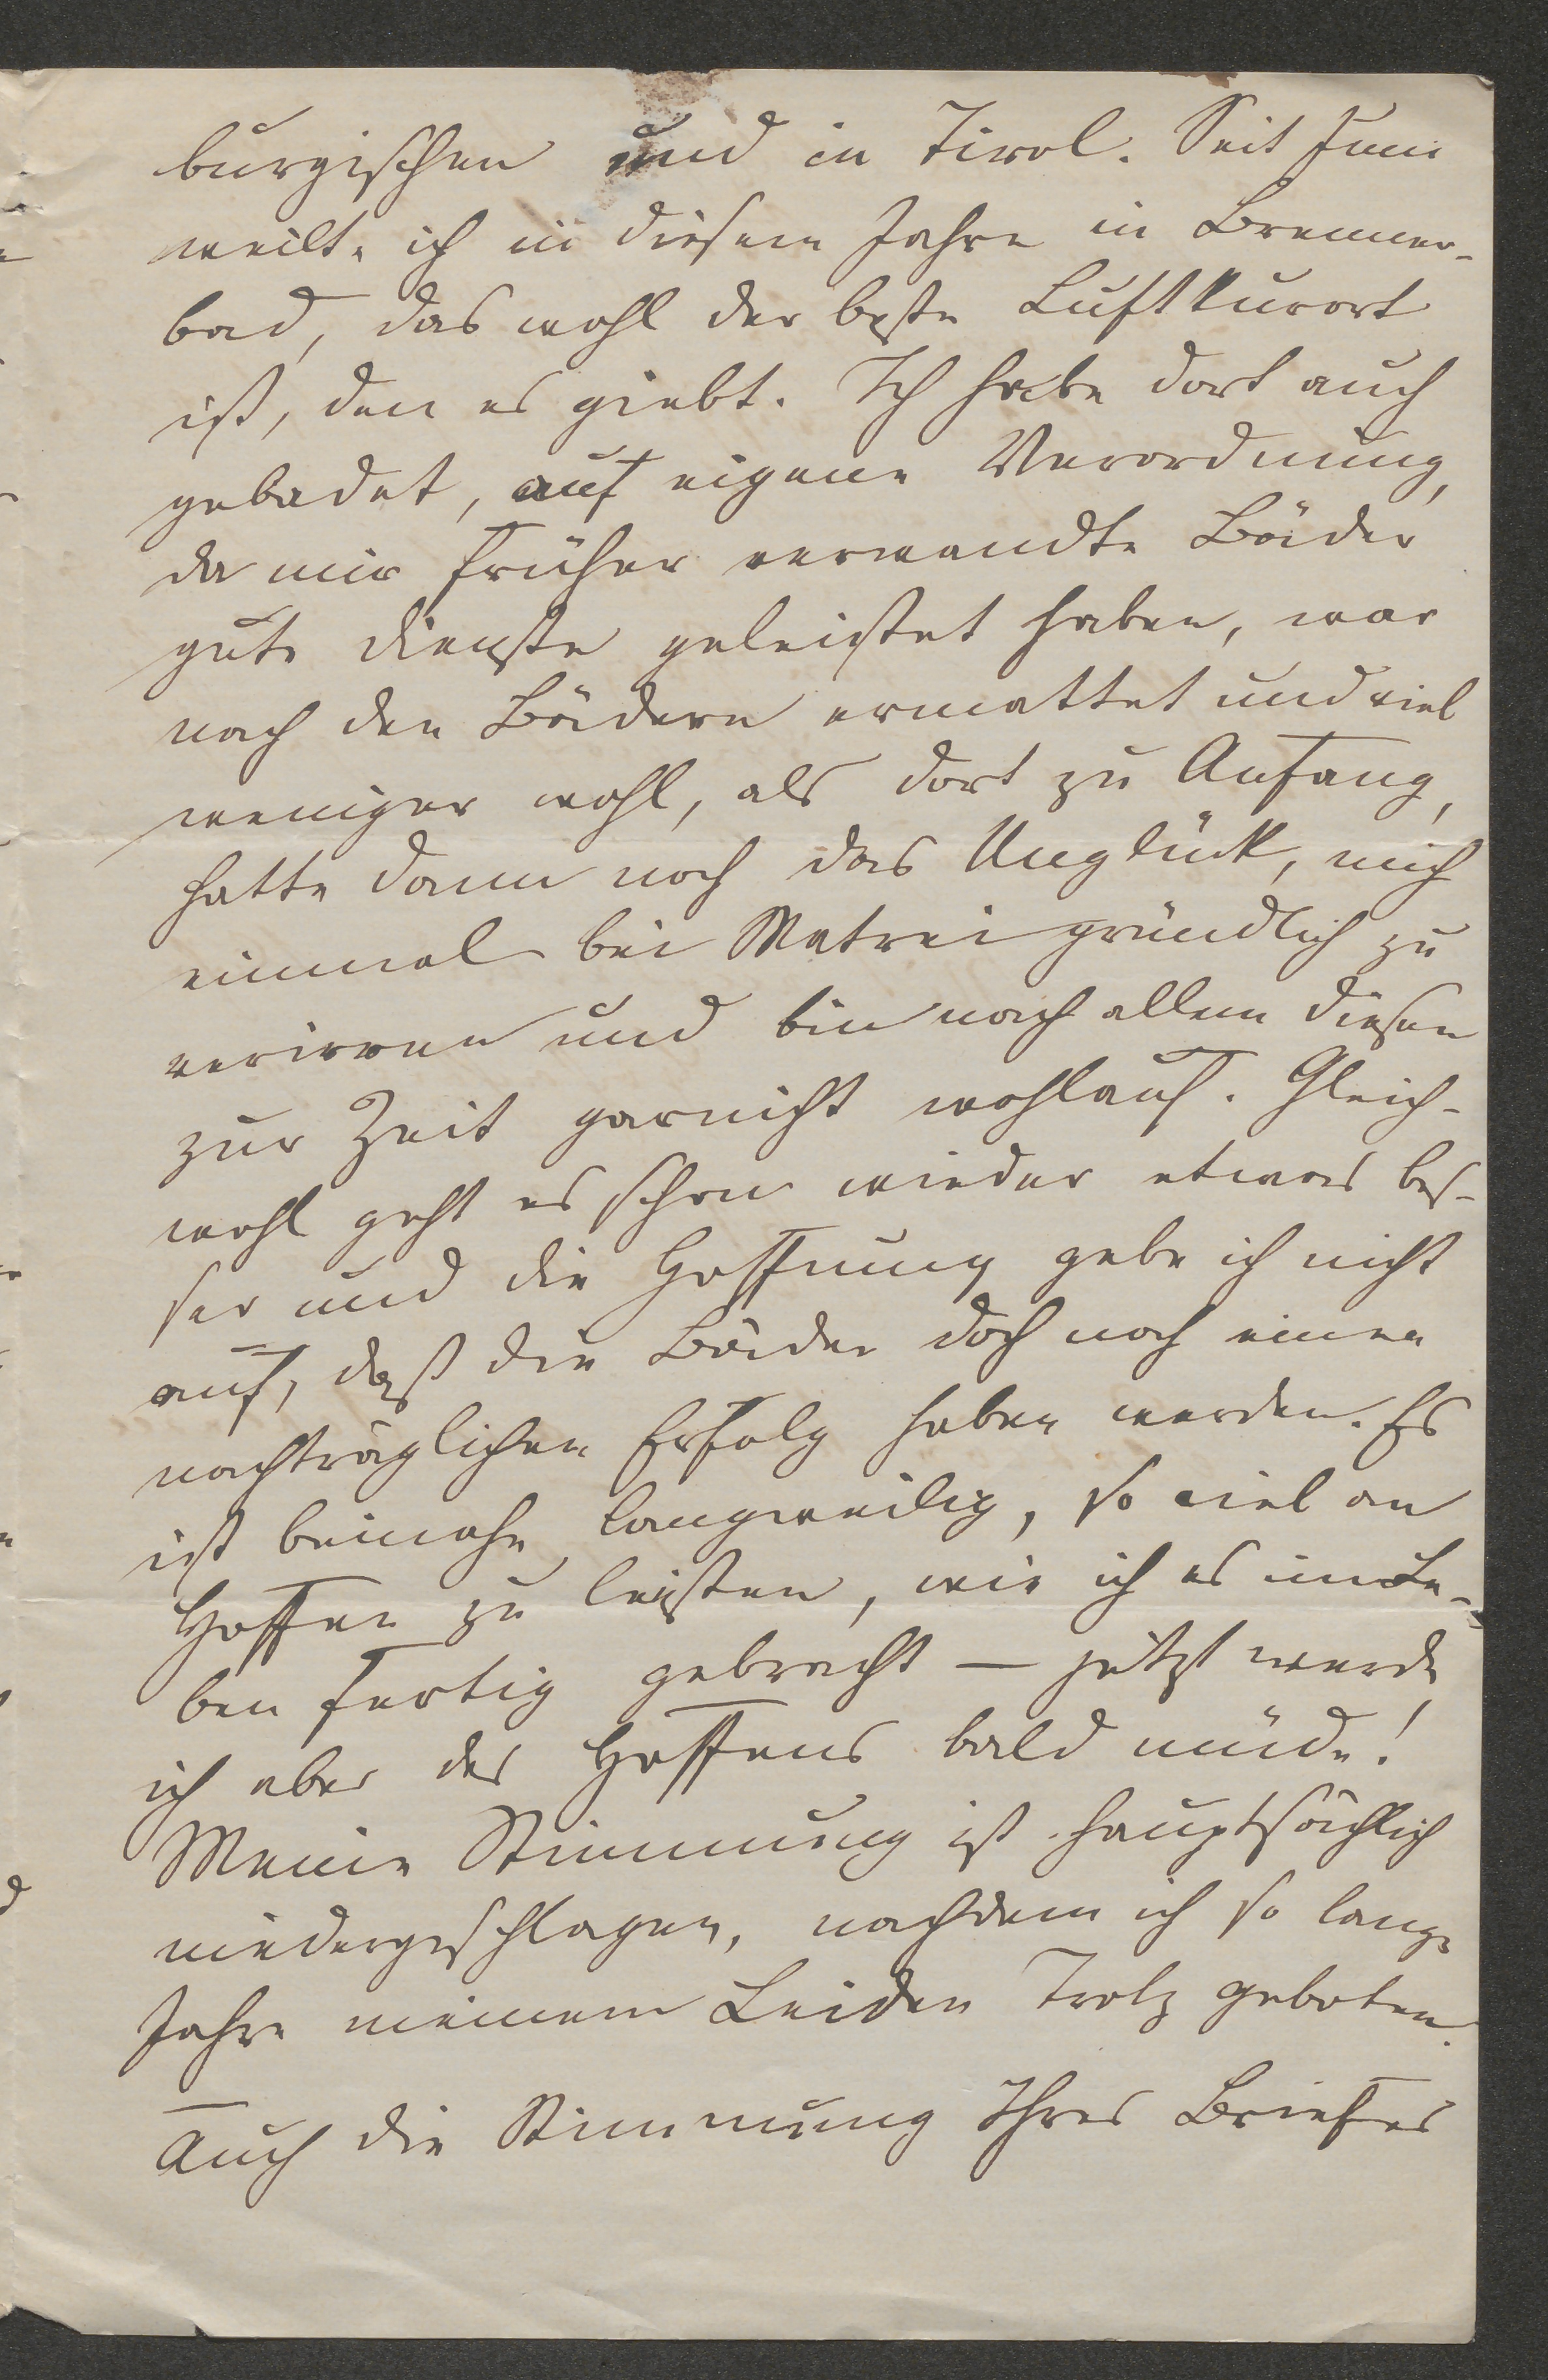 burgischen und in Tirol. Seit Juni
weilte ich in diesem Jahre in Brenner-
bad, das wohl der beste Luftkurort
ist, den es giebt. Ich habe dort auch
gebadet, auf eigene Verordnung,
da mir früher verwandte Bäder
gute Dienste geleistet haben, war
nach den Bädern ermattet und viel
weniger wohl, als dort zu Anfang,
hatte dann noch das Unglück, mich
einmal bei Matrei gründlich zu
verirren und bin nach allem diesen
zur Zeit garnicht wohlauf. Gleich-
wohl geht es schon wieder etwas bes-
ser und die Hoffnung gebe ich nicht
auf, daß die Bäder doch noch einen
nachträglichen Erfolg haben werden. Es
ist beinahe langweilig, so viel an
Hoffen zu leisten, wie ich es im Le-
ben fertig gebracht — jetzt werde
ich aber des Hoffens bald müde!
Meine Stimmung ist hauptsächlich
niedergeschlagen, nachdem ich so lange
Jahre meinem Leiden Trotz geboten.
Auch die Stimmung Ihres Briefes